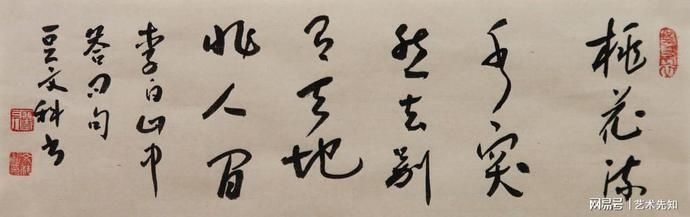 桃花流
水窅
然去别
有天地
非人间
李白山中
答问句
豆文科书
网易号 | 艺术先知